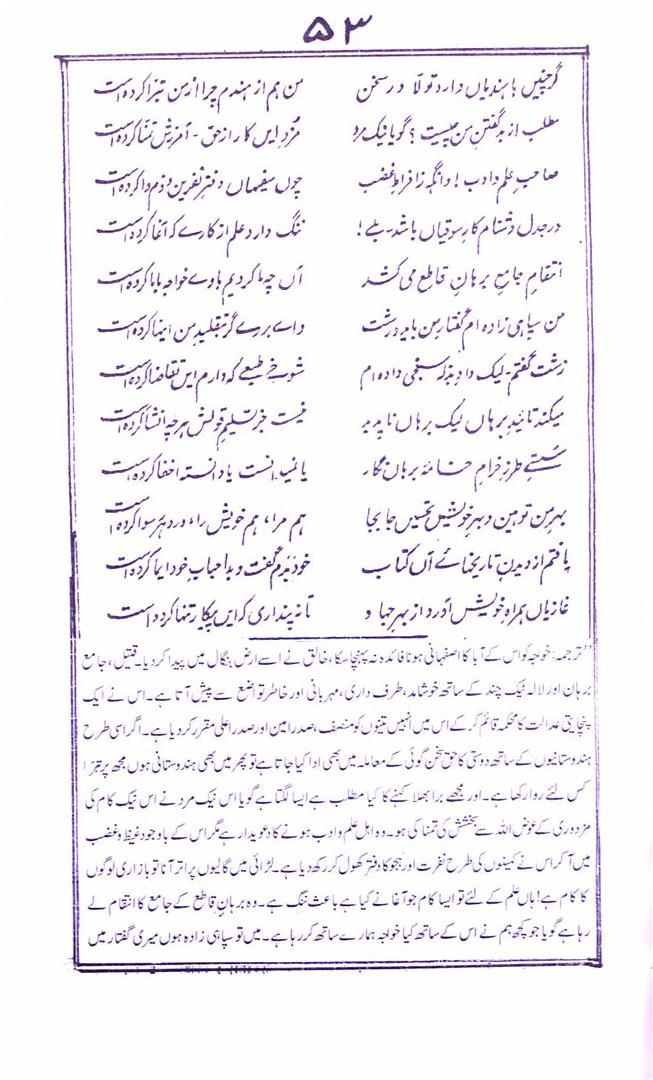 ۵۳
گر چنیں با ہندیاں دارد تولّا در سخن من ہم از ہندم چرا از من تبرّا کردہ است
مطلب از بد گفتنِ من چیست ؟ گویا نیک مرد مُزدِ ایں کار از حق - آمرزش تمنّا کردہ است
صاحبِ علم و ادب ! وانگہ ز افراطِ غضب چوں سفیہاں دفترِ نفرین و ذم وا کردہ است
در جدل دشنام کارِ سوقیاں باشد - بلے ! ننگ دارد علم از کارے کہ آغا کردہ است
انتقامِ جامعِ برہانِ قاطع می کشد آں چہ ما کردیم با وے خواجہ با ما کردہ است
من سپاہی زادہ ام گفتارِ من باید درشت وائے بر وے گر بتقلیدِ من اینہا کردہ است
زشت گفتم - لیک دادِ بذلہ سنجی دادہ ام شوخیِ طبعے کہ دارم ایں تقاضا کردہ است
میکند تائیدِ برہاں لیک برہاں ناپدید نیست جز تسلیمِ قولش ہر چہ انشا کردہ است
سُستیِ طرزِ خرامِ خامۂ برہان نگار یا نمیدانست یا دانستہ اخفا کردہ است
بہرِ من توہین و بہرِ خویشتن تحسیں جا بجا ہم مرا، ہم خویش را، در دہر رسوا کردہ است
یافتم از دیدنِ تاریخہائے آں کتاب خود بدم گفت و بد احبابِ خود ایما کردہ است
غازیاں ہمراہ خویش آورد از بہرِ جہاد تا نہ پنداری کہ ایں پیکار تنہا کردہ است
"ترجمہ: خواجہ کو اس کے آبا کا اصفہانی ہونا فائدہ نہ پہنچا سکا، خالق نے اسے ارضِ بنگال میں پیدا کر دیا۔ قتیل، جامع
برہان اور لالہ ٹیک چند کے ساتھ خوشامد، طرف داری، مہربانی اور خاطر تواضع سے پیش آتا ہے۔ اس نے ایک
پنچایتی عدالت کا محکمہ قائم کر کے اس میں انہیں تینوں کو منصف، صدر امین اور صدر اعلی مقرر کر دیا ہے۔ اگر اسی طرح
ہندوستانیوں کے ساتھ دوستی کا حق سخن گوئی کے معاملہ میں بھی ادا کیا جاتا ہے تو پھر میں بھی ہندوستانی ہوں مجھ پر تبرّا
کس لئے روا رکھا ہے۔ اور مجھے برا بھلا کہنے کا کیا مطلب ہے ایسا لگتا ہے گویا اس نیک مرد نے اس نیک کام کی
مزدوری کے عوض اللہ سے بخشش کی تمنا کی ہو۔ وہ اہل علم و ادب ہونے کا دعویدار ہے مگر اس کے باوجود غیظ و غضب
میں آ کر اس نے کمینوں کی طرح نفرت اور ہجو کا دفتر کھول کر رکھ دیا ہے۔ لڑائی میں گالیوں پر اتر آنا تو بازاری لوگوں
کا کام ہے! ہاں علم کے لئے تو ایسا کام جو آغا نے کیا ہے باعث ننگ ہے۔ وہ برہانِ قاطع کے جامع کا انتقام لے
رہا ہے گویا جو کچھ ہم نے اس کے ساتھ کیا خواجہ ہمارے ساتھ کر رہا ہے۔ میں تو سپاہی زادہ ہوں میری گفتار میں